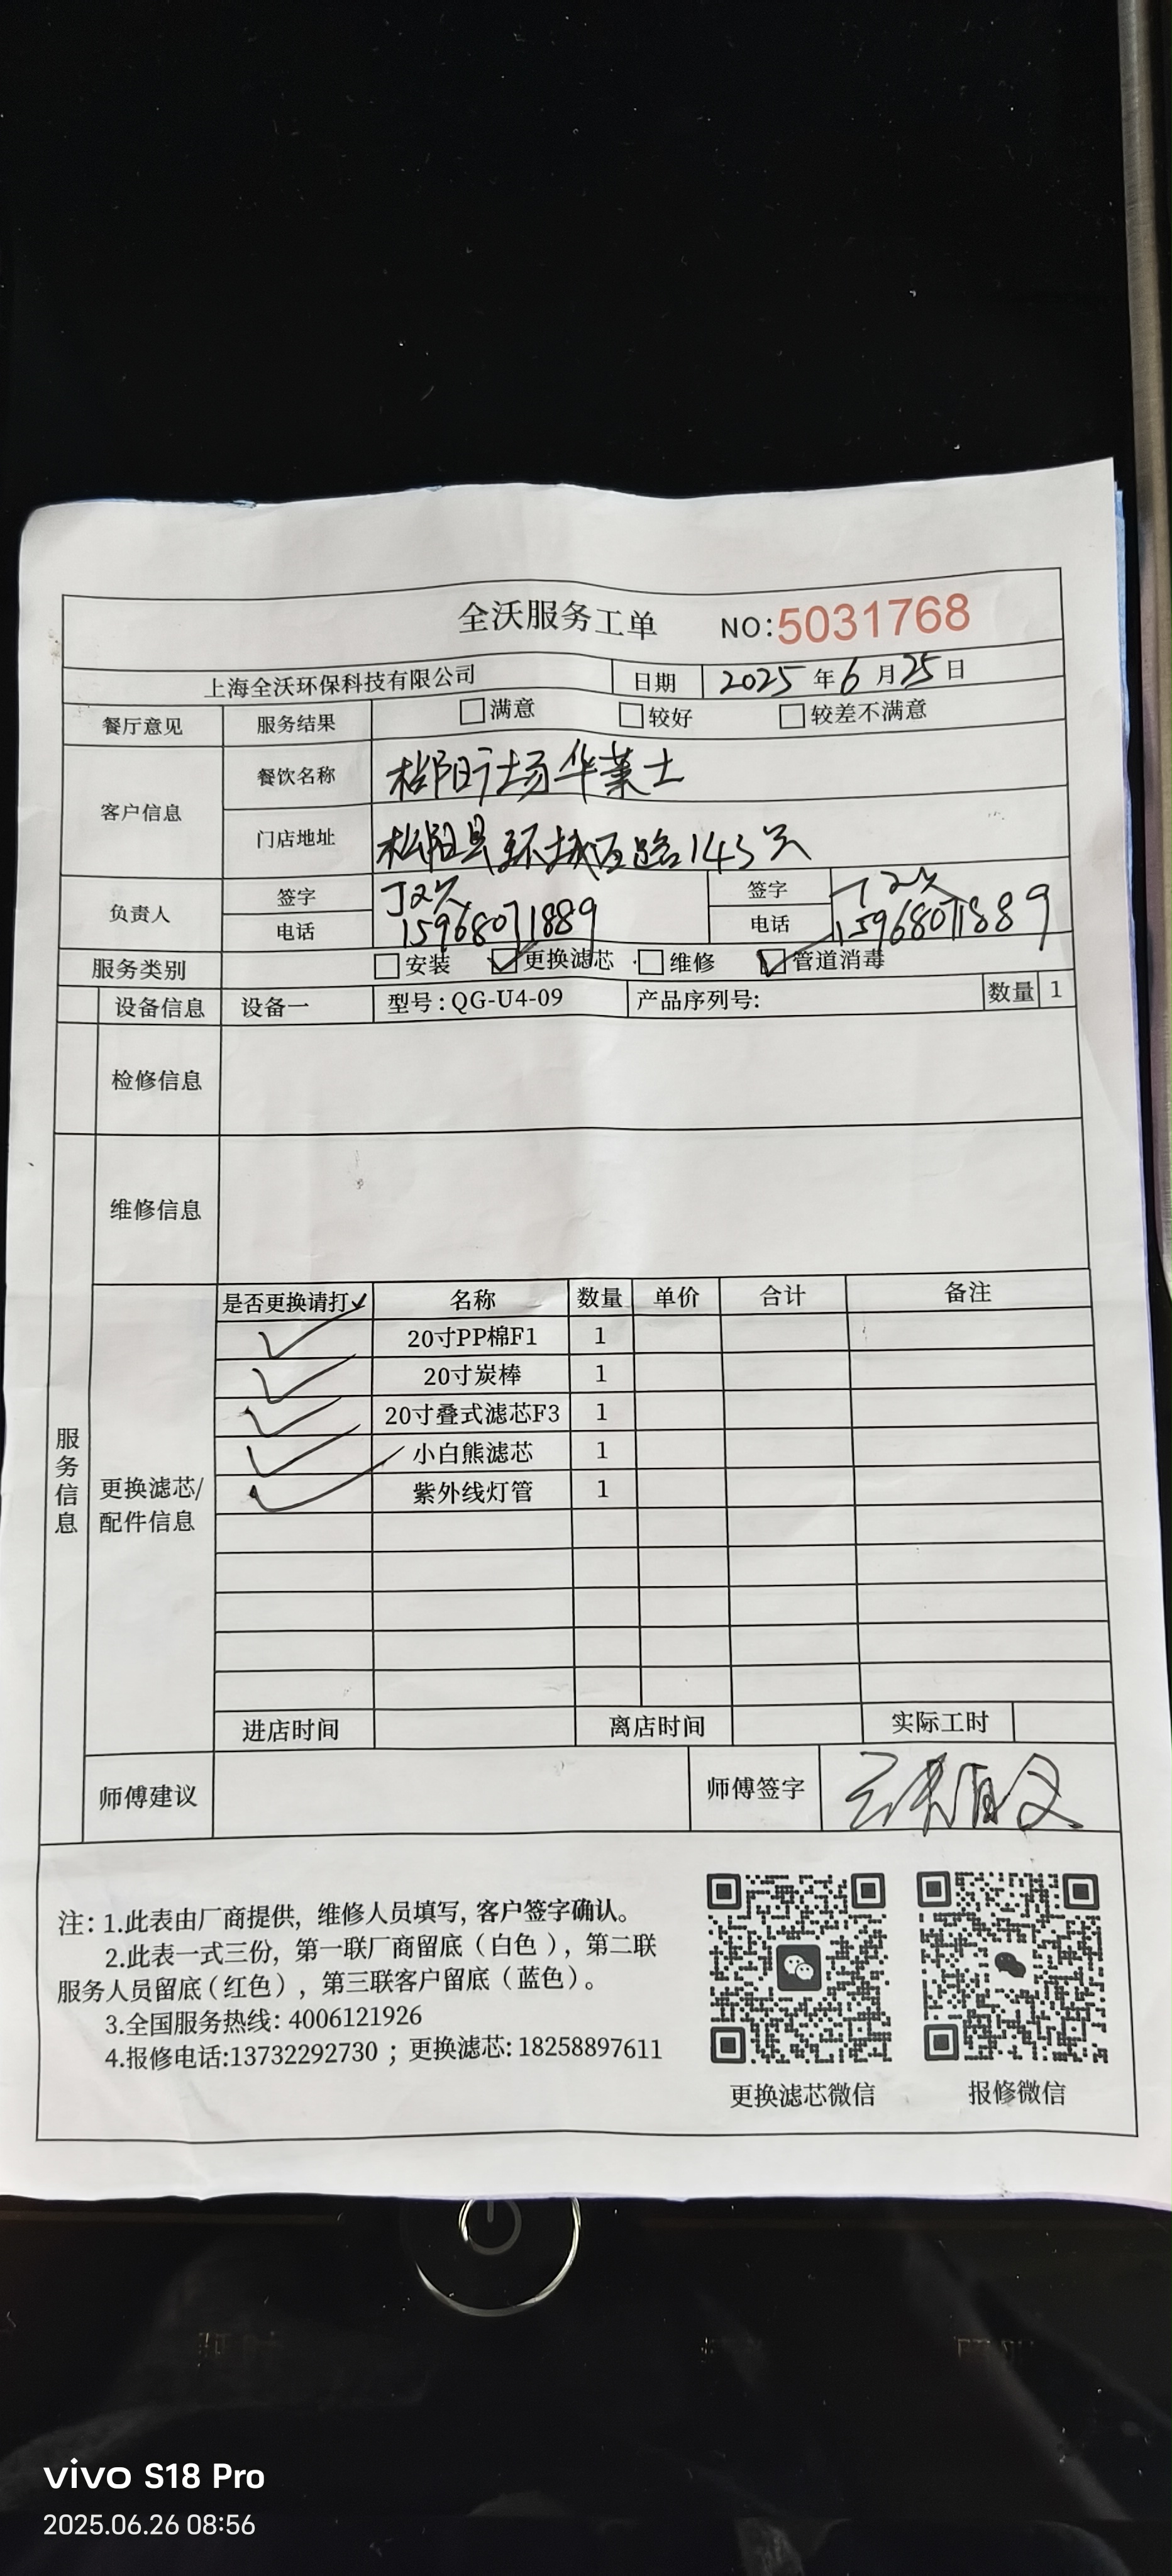 全沃服务工单 NO:5031768
上海全沃环保科技有限公司 日期 2025年6月25日
餐厅意见 服务结果 □满意 □较好 □较差不满意
客户信息 餐饮名称 松阳广场华莱士
门店地址 松阳县环城西路143号
负责人 签字 签字
电话 15968071889 电话 15968071889
服务类别 □安装 ☑更换滤芯 □维修 ☑管道消毒
设备信息 设备一 型号:QG-U4-09 产品序列号: 数量 1
检修信息
维修信息
服务信息
更换滤芯/
配件信息
是否更换请打✓ 名称 数量 单价 合计 备注
✓ 20寸PP棉F1 1
✓ 20寸炭棒 1
✓ 20寸叠式滤芯F3 1
✓ 小白熊滤芯 1
✓ 紫外线灯管 1
进店时间 离店时间 实际工时
师傅建议 师傅签字
注: 1.此表由厂商提供, 维修人员填写, 客户签字确认。
2.此表一式三份, 第一联厂商留底（白色）, 第二联
服务人员留底（红色）, 第三联客户留底（蓝色）。
3.全国服务热线: 4006121926
4.报修电话:13732292730 ; 更换滤芯: 18258897611
更换滤芯微信 报修微信
vivo S18 Pro
2025.06.26 08:56